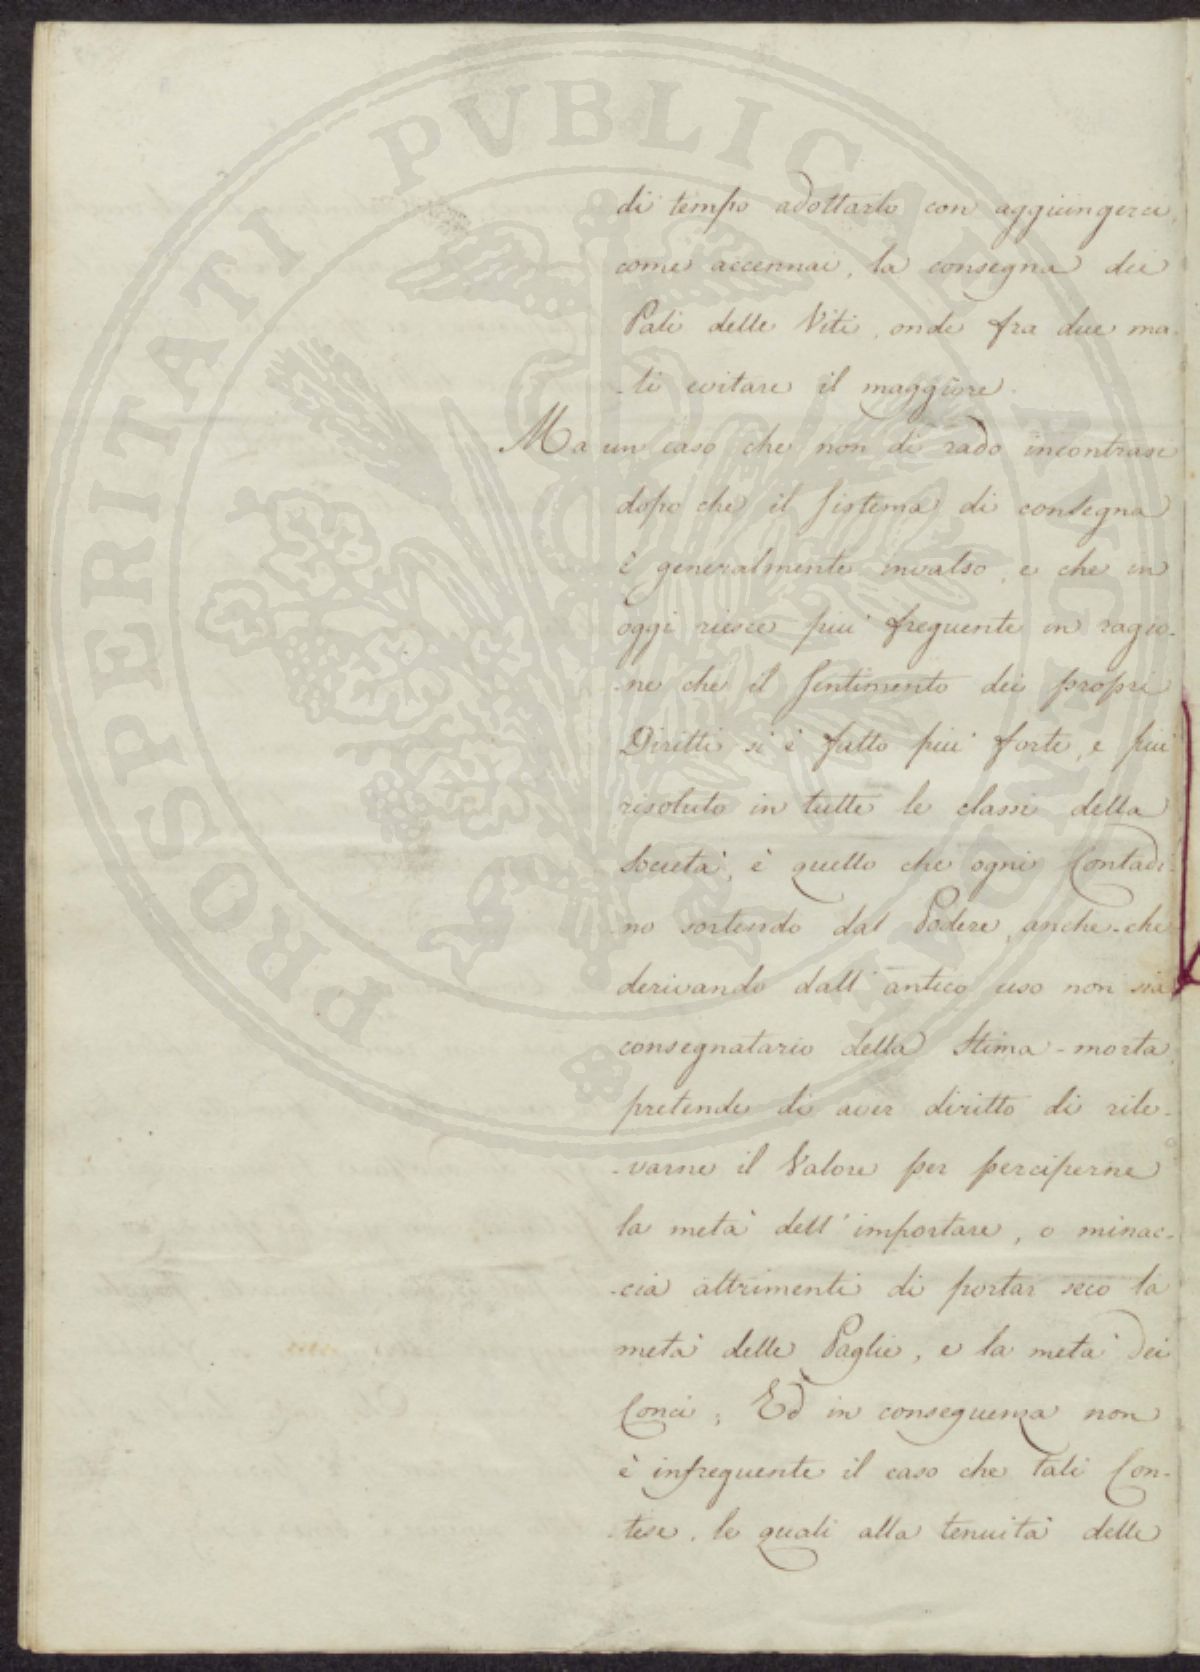 di tempo adottarlo con aggiungerci,
come accennai, la consegna dei
Pali delle Viti, onde fra due ma-
-li evitare il maggiore.
Ma un caso che non di rado incontrasi
dopo che il Sistema di consegna
è generalmente invalso, e che in
oggi riesce piu' frequente in ragio-
-ne che il Sentimento dei propri
Diritti si è fatto piu' forte, e piu'
risoluto in tutte le classi della
Società, è quello che ogni Contadi-
-no sortendo dal Podere, anche-che
derivando dall' antico uso non sia
consegnatario della Stima-morta,
pretende di aver diritto di rile-
-varne il Valore per perciperne
la metà dell' importare, o minac-
-cia altrimenti di portar seco la
metà delle Paglie, e la metà dei
Conci; Ed in conseguenza non
è infrequente il caso che tali Con-
-tese, le quali alla tenuità delle
PROSPERITATI PVBLICAE AVGENDAE